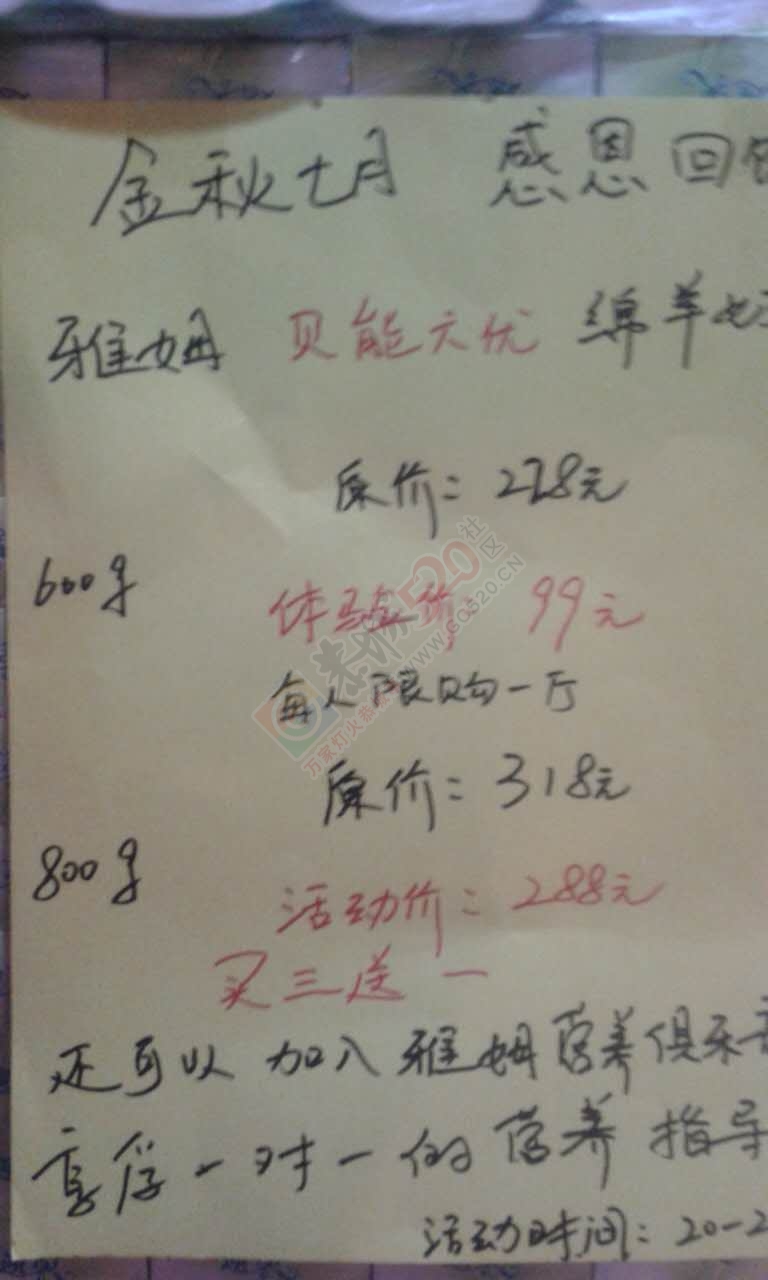 金秋七月 感恩回
雅姆 贝能六优 绵羊
原价：228元
600g
体验价：99元
每人限购一厅
原价：318元
800g
活动价：288元
买三送一
还可以加入雅姆营养俱乐
享俘一对一的营养指导
活动时间：20-2
社区
520
WWW.GC520.CN
万家灯火恭